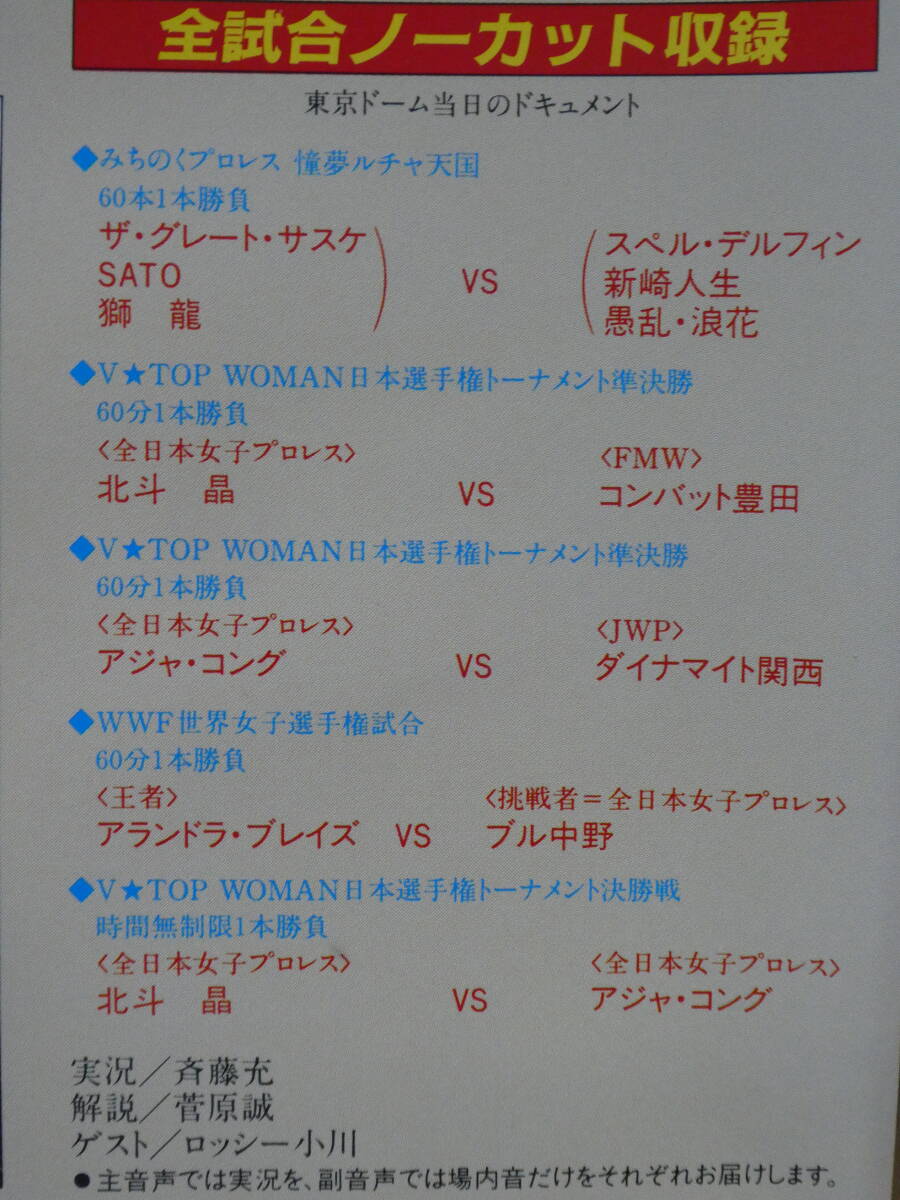 全試合ノーカット収録
東京ドーム当日のドキュメント
◆みちのくプロレス 憧夢ルチャ天国
60本1本勝負
ザ・グレート・サスケ
SATO
獅 龍
VS
スペル・デルフィン
新崎人生
愚乱・浪花
◆V★TOP WOMAN日本選手権トーナメント準決勝
60分1本勝負
〈全日本女子プロレス〉 〈FMW〉
北斗 晶 VS コンバット豊田
◆V★TOP WOMAN日本選手権トーナメント準決勝
60分1本勝負
〈全日本女子プロレス〉 〈JWP〉
アジャ・コング VS ダイナマイト関西
◆WWF世界女子選手権試合
60分1本勝負
〈王者〉 〈挑戦者=全日本女子プロレス〉
アランドラ・ブレイズ VS ブル中野
◆V★TOP WOMAN日本選手権トーナメント決勝戦
時間無制限1本勝負
〈全日本女子プロレス〉 〈全日本女子プロレス〉
北斗 晶 VS アジャ・コング
実況/斉藤充
解説/菅原誠
ゲスト/ロッシー小川
●主音声では実況を、副音声では場内音だけをそれぞれお届けします。